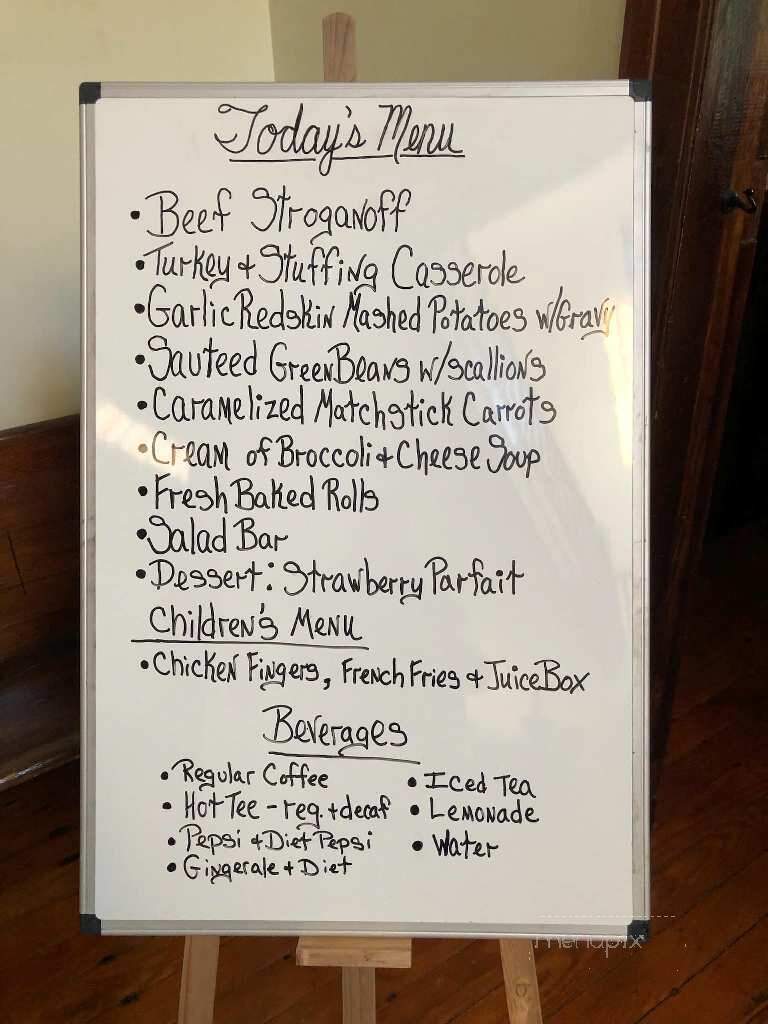 Today's Menu
• Beef Stroganoff
• Turkey + Stuffing Casserole
• Garlic Redskin Mashed Potatoes w/Gravy
• Sauteed Green Beans w/scallions
• Caramelized Matchstick Carrots
• Cream of Broccoli + Cheese Soup
• Fresh Baked Rolls
• Salad Bar
• Dessert: Strawberry Parfait
Children's Menu
• Chicken Fingers, French Fries + Juice Box
Beverages
• Regular Coffee
• Hot Tee - reg. + decaf
• Pepsi + Diet Pepsi
• Gingerale + Diet
• Iced Tea
• Lemonade
• Water
menupix